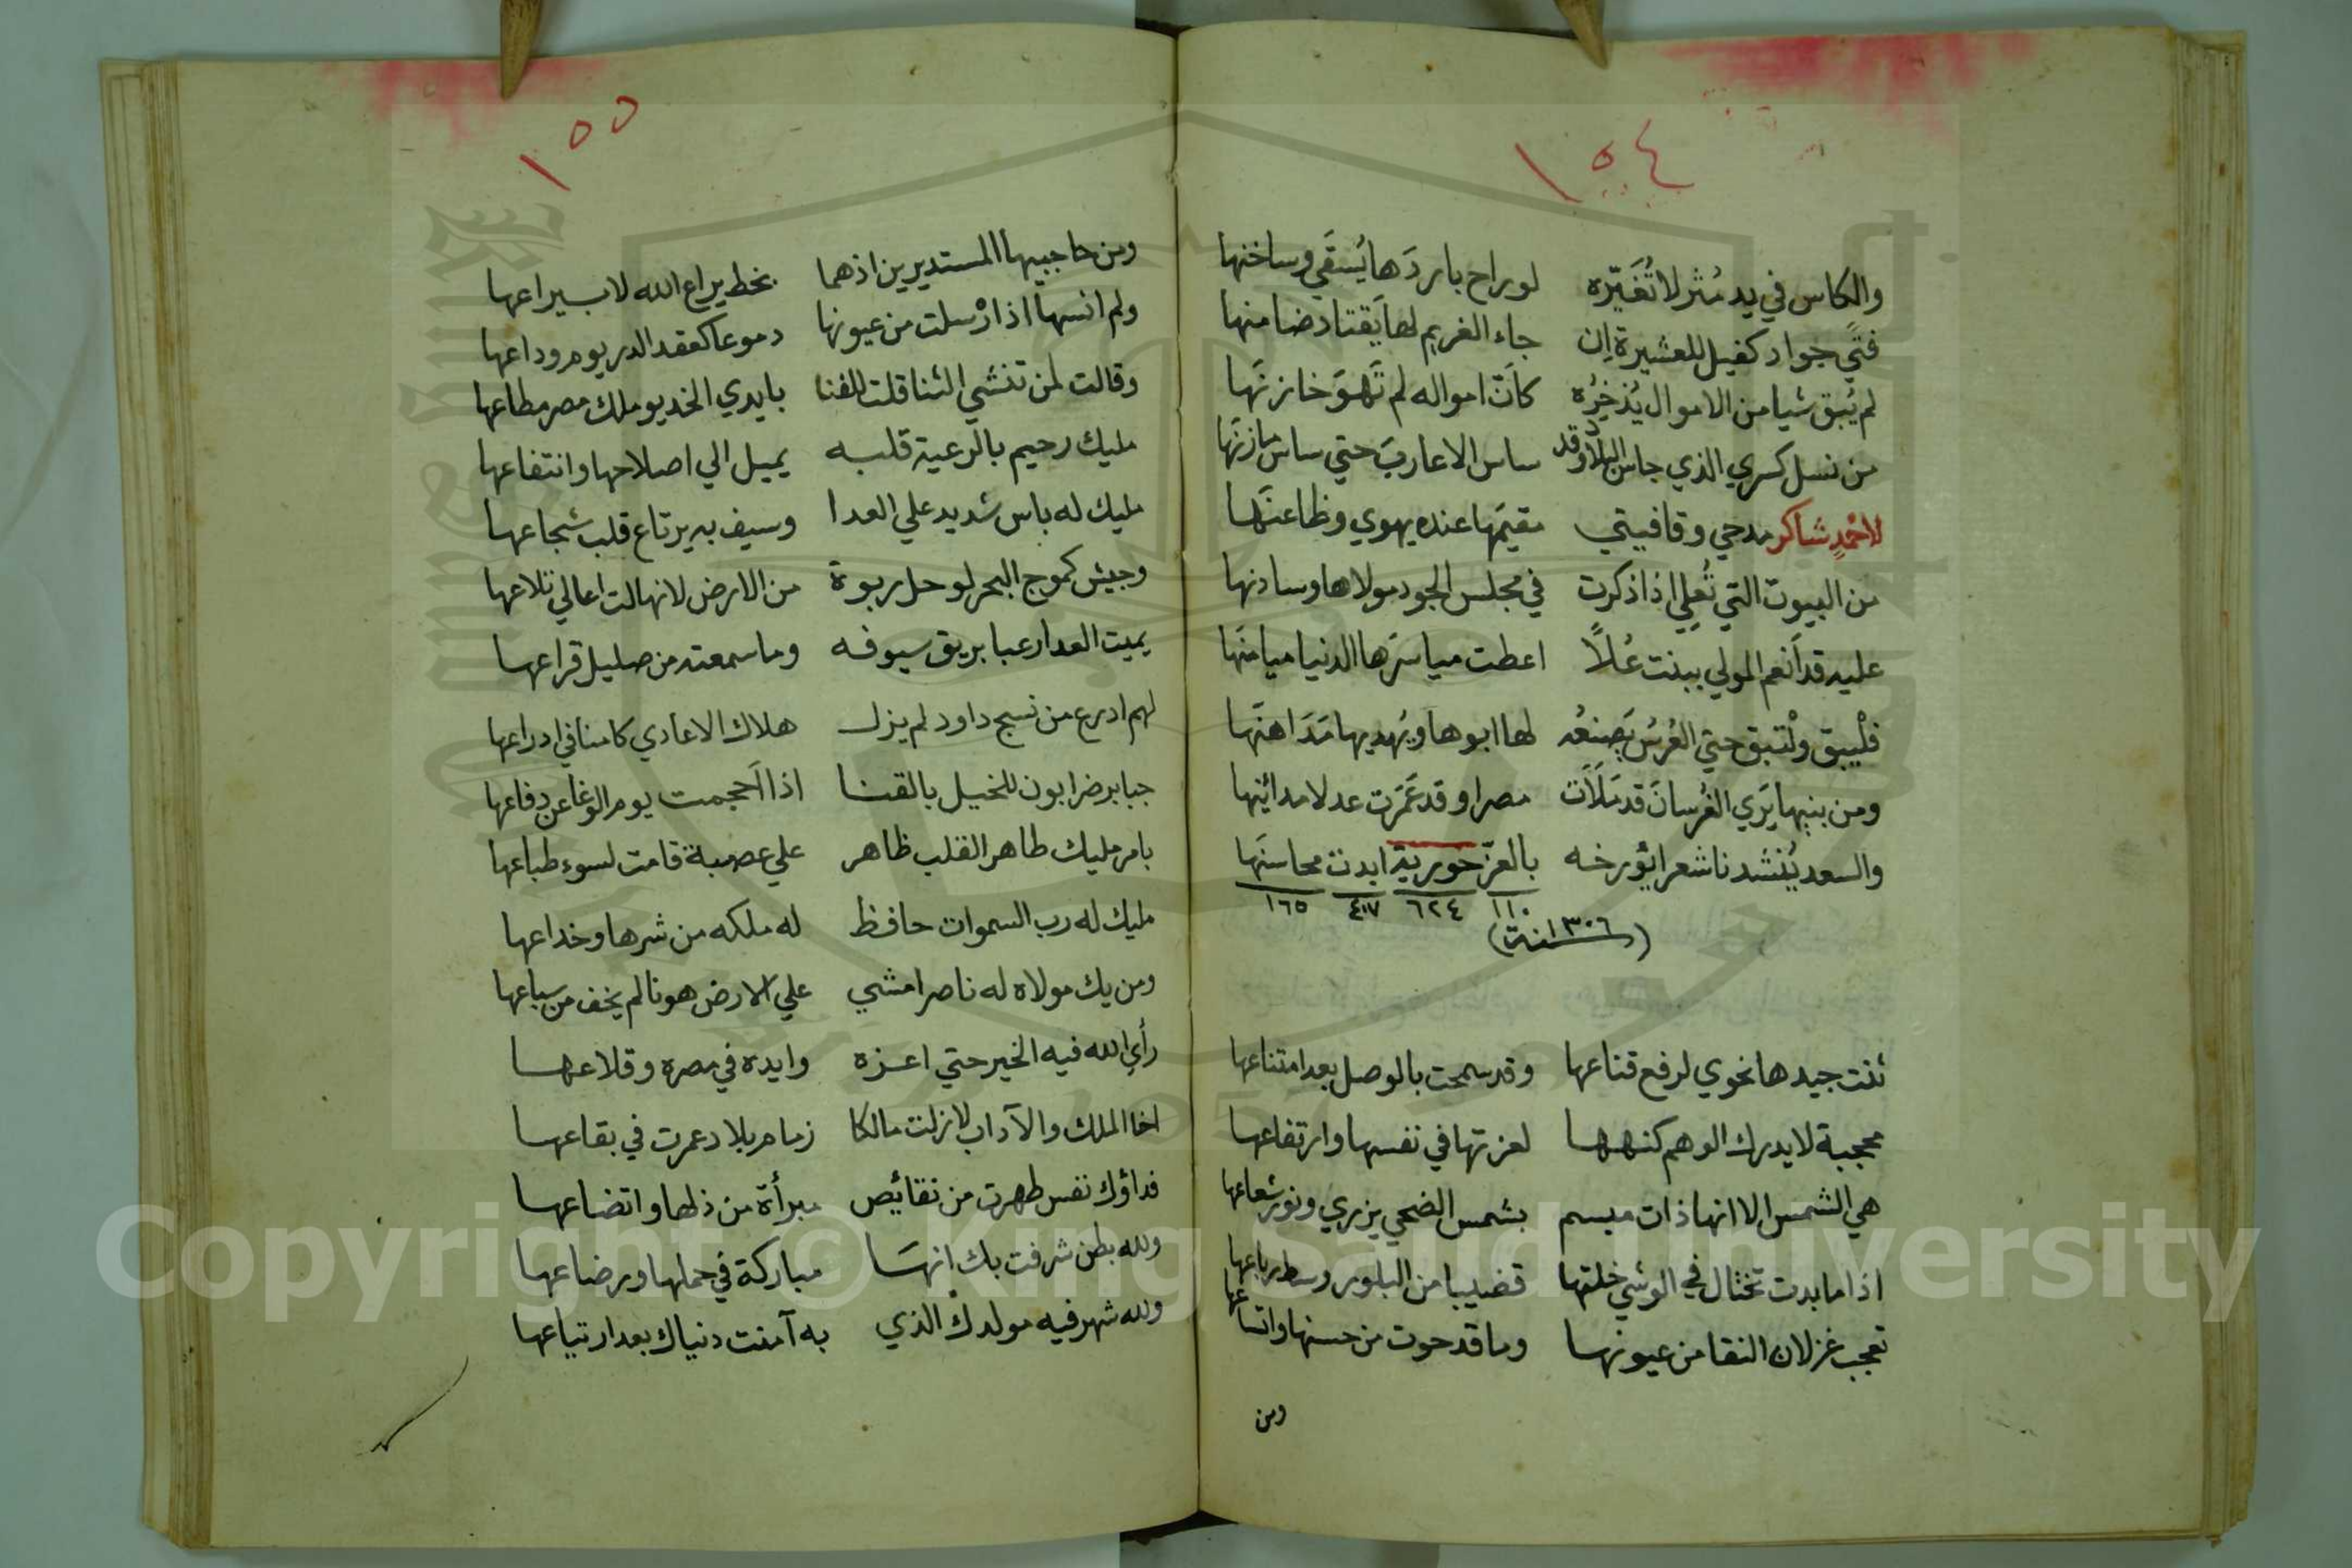 ١٥٤
والكاس في يد مُثر لا تُغَيّره لو راح باردَها يُسقَي وساخنها
فتًي جواد كفيل للعشيرة إن جاء الغريم لها يَقتاد ضامنها
لم يُبق شيا من الاموال يُذخِرُه كاَنّ امواله لم تَهوَ خازنَها
من نسل كسري الذي جاس البلاد وقد ساس الاعاربَ حتي ساس مازنَها
لاحمدٍ شاكر مدحي وقافيتي مقيمَها عنده يهوي وظاعنَها
من البيوت التي تُعلي اذا ذكرت في مجلس الجود مولاها وسادنها
عليه قد اَنعم المولي ببنت عُلاً اعطت مياسرَها الدنيا ميامنَها
فلْيبق ولْتبق حتي العُرسُ يَصنعُه لها ابوها ويُهديها مَدَاهنَها
ومن بنيها يَرَي الفُرسانَ قد مَلَاَت مصرا وقد عَمَرَت عدلا مدائِنها
والسعد يُنشدنا شعرا يؤرخه بالعزّ حورية ابدت محاسنَها
١١٠ ٦٢٤ ٤٠٧ ١٦٥
(سنة ١٣٠٦)
ثنت جيدها نحوي لرفع قناعها وقد سمحت بالوصل بعد امتناعها
محجبة لا يدرك الوهم كنهها لعزتها في نفسها وارتفاعها
هي الشمس الا انها ذات ميسم بشمس الضحي يزري ونور شعاعها
اذا ما بدت تختال في الوشي خلتها قضيبا من البلور وسط رباعها
تعجب غزلان النقا من عيونها وما قد حوت من حسنها واتساعها
ومن
١٥٥
ومن حاجبيها المستديرين اذ هما بخط يراع الله لا بيراعها
ولم انسها اذ ارْسلت من عيونها دموعا كعقد الدر يوم وداعها
وقالت لمن تنشي الثنا قلت للفنا بايدي الخديو ملك مصر مطاعها
مليك رحيم بالرعية قلبه يميل الي اصلاحها وانتفاعها
مليك له باس شديد علي العدا وسيف به يرتاع قلب شجاعها
وجيش كموج البحر لو حل ربوة من الارض لانهالت اعالي تلاعها
يميت العدا رعبا بريق سيوفه وما سمعته من صليل قراعها
لهم ادرع من نسج داود لم يزل هلاك الاعادي كامنا في ادراعها
جبابر ضرابون للخيل بالقنا اذا اَحجمت يوم الوغا عن دفاعها
بامر مليك طاهر القلب ظاهر علي عصبة قامت لسوء طباعها
مليك له رب السموات حافظ له ملكه من شرها وخداعها
ومن يك مولاه له ناصرا مشي علي الارض هونا لم يخف من سباعها
رأي الله فيه الخير حتي اعزه وايده في مصره وقلاعها
اخا الملك والآداب لا زلت مالكا زمام بلاد عمرت في بقاعها
فداؤك نفس طهرت من نقائص مبرأة من ذلها واتضاعها
ولله بطن شرفت بك انهَا مباركة في حملها ورضاعها
ولله شهر فيه مولدك الذي به آمنت دنياك بعد ارتياعها
Copyright © King Saud University